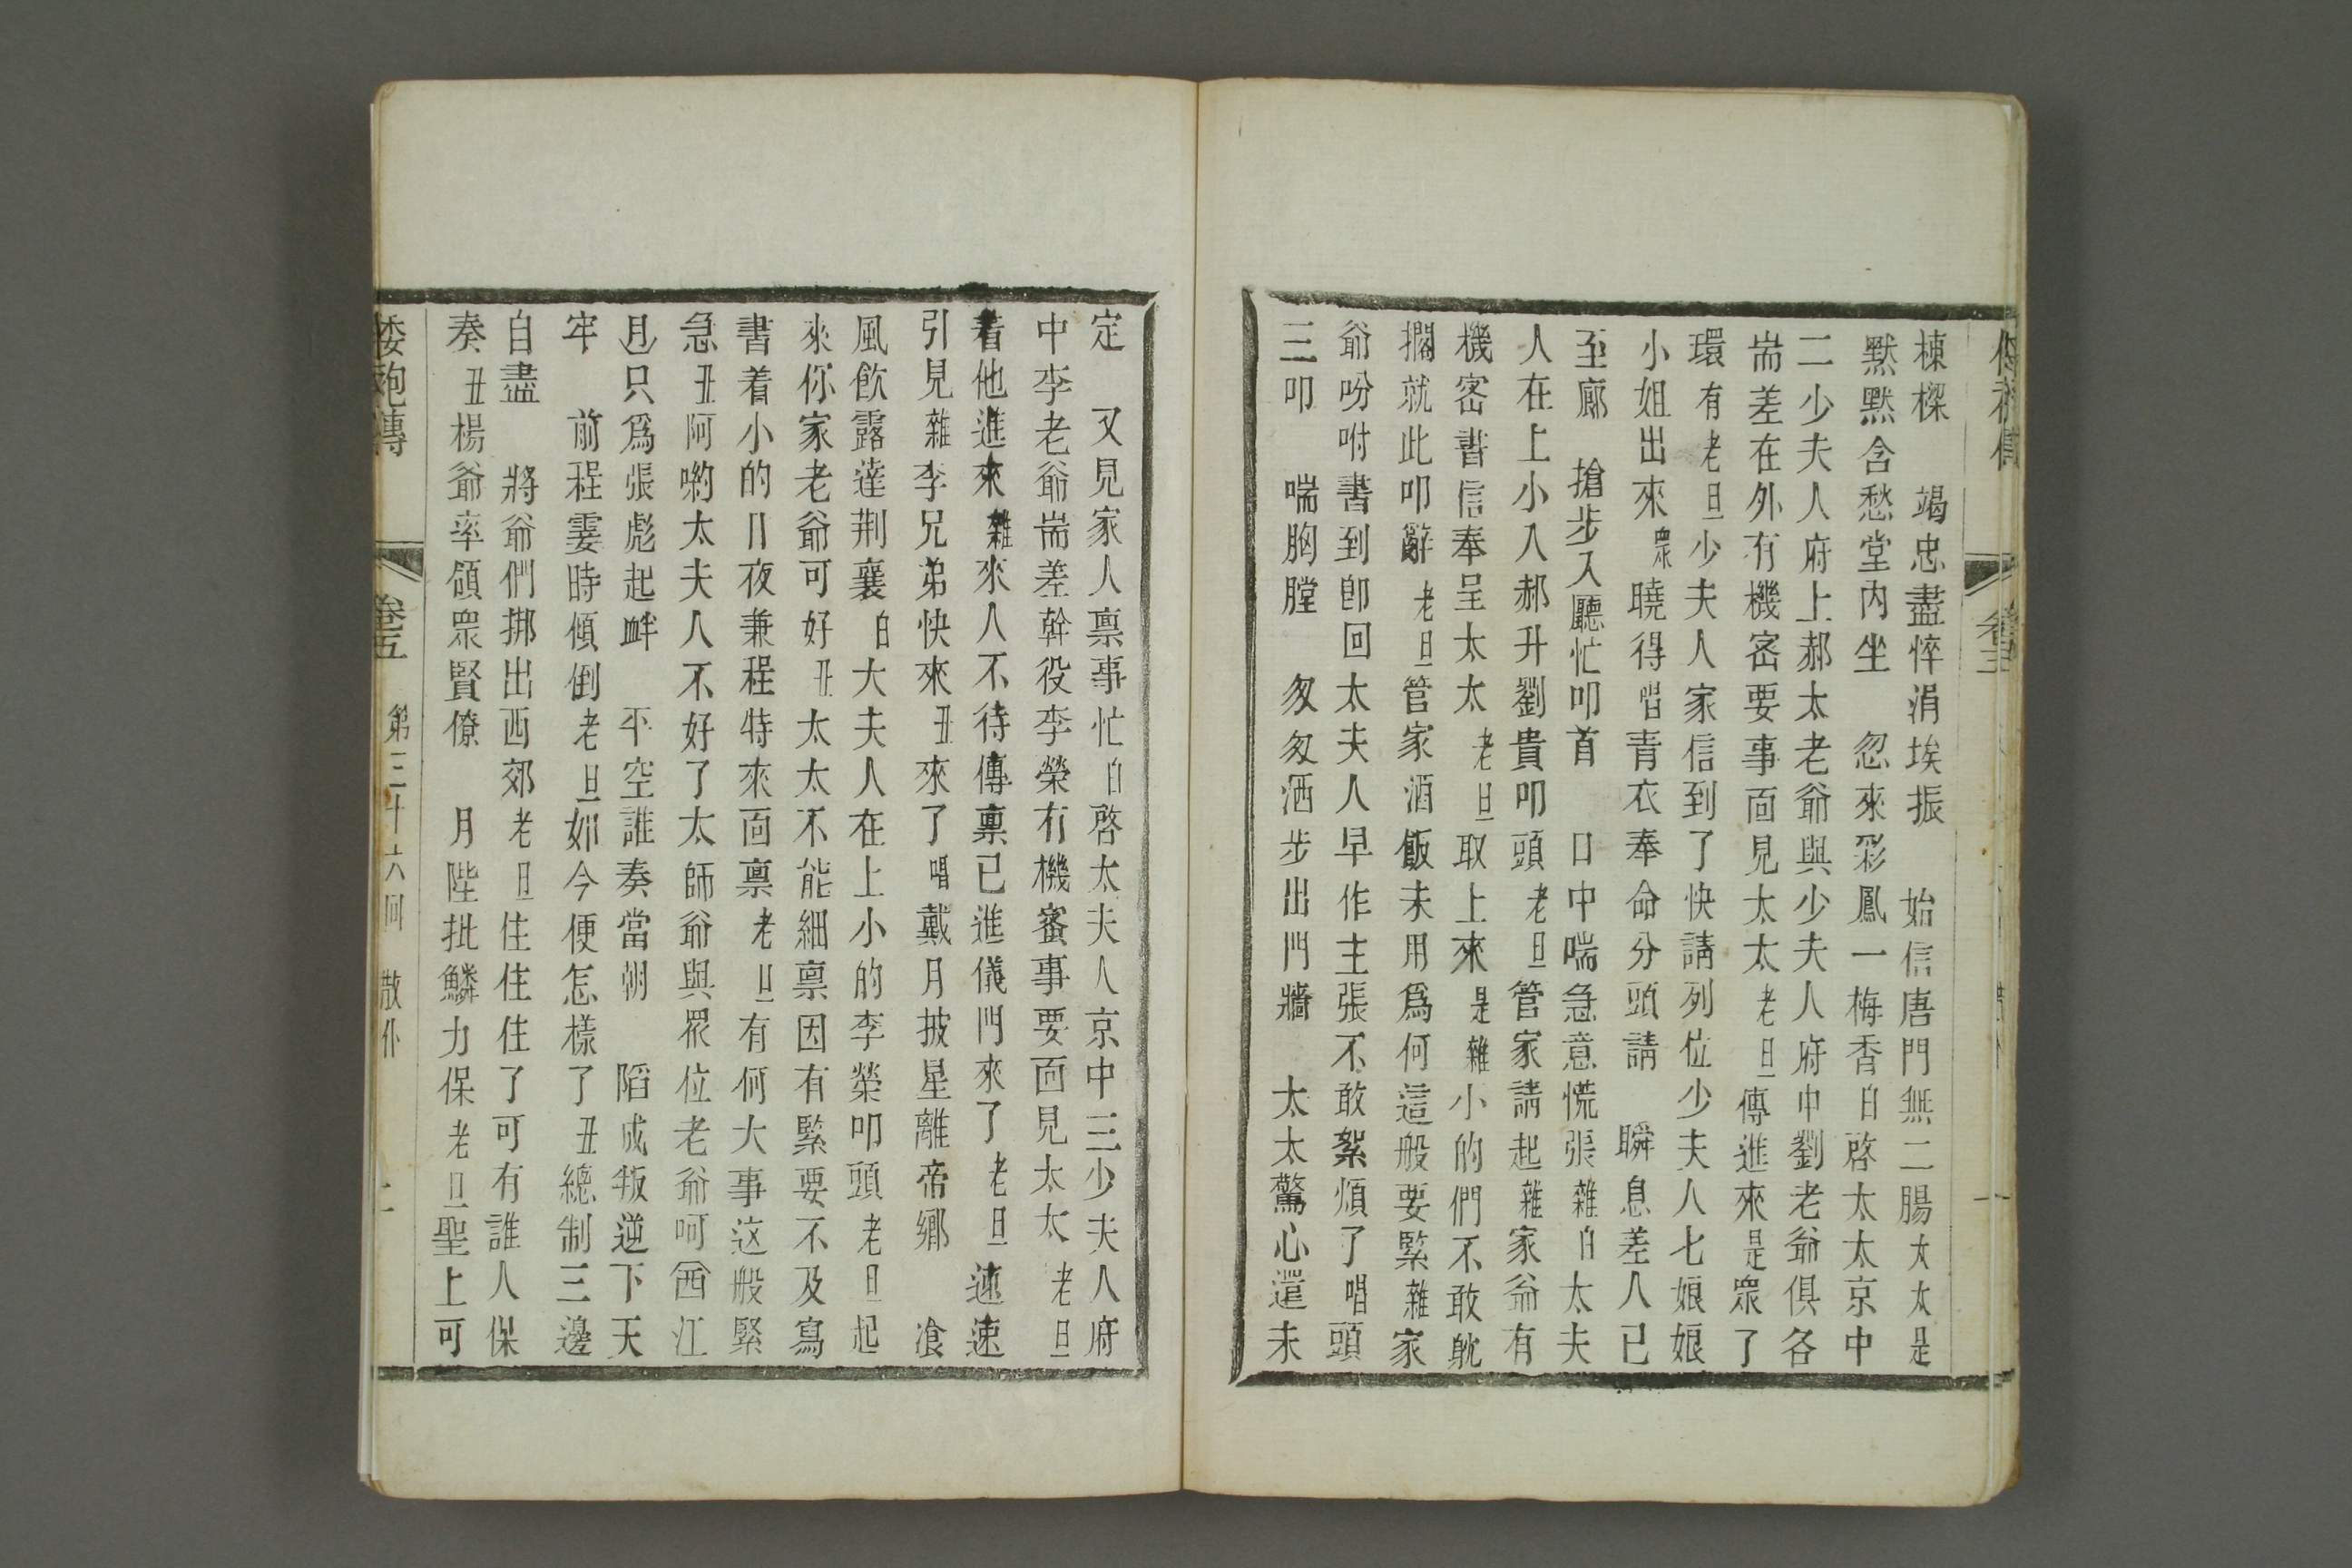 棟樑 竭忠盡悴涓埃振 始信唐門無二腸太太是
默默含愁堂內坐 忽來彩鳳一梅香白啓太太京中
二少夫人府上郝太老爺與少夫人府中劉老爺俱各
耑差在外有機宻要事面見太太老旦傳進來是衆了
環有老旦少夫人家信到了快請列位少夫人七娘娘
小姐出來衆曉得唱青衣奉命分頭請 瞬息差人已
至廊 搶步入廳忙叩首 口中喘急意慌張雜白太夫
人在上小人郝升劉貴叩頭老旦管家請起雜家爺有
機宻書信奉呈太太老旦取上來是雜小的們不敢躭
擱就此叩辭老旦管家酒飯未用爲何這般要緊雜家
爺吩咐書到即回太夫人早作主張不敢絮煩了唱頭
三叩 喘胸膛 匆匆洒步出門牆 太太驚心還未
定 又見家人禀事忙白啓太夫人京中三少夫人府
中李老爺耑差幹役李榮有機密事要面見太太老旦
着他進來雜來人不待傳禀已進儀門來了老旦速速
引見雜李兄弟快來丑來了唱戴月披星離帝鄉 飡
風飲露達荆襄白大夫人在上小的李榮叩頭老旦起
來你家老爺可好丑太太不能細禀因有緊要不及寫
書着小的日夜兼程特來面禀老旦有何大事这般緊
急丑阿喲太夫人不好了太師爺與衆位老爺呵西江
月只爲張彪起衅 平空誰奏當朝 陷成叛逆下天
牢 前程霎時傾倒老旦如今便怎樣了丑總制三邊
自盡 將爺們挷出西郊老旦住住住了可有誰人保
奏丑楊爺率領衆賢僚 月陛批鱗力保老旦聖上可
倭袍傳 卷五 第三十六回